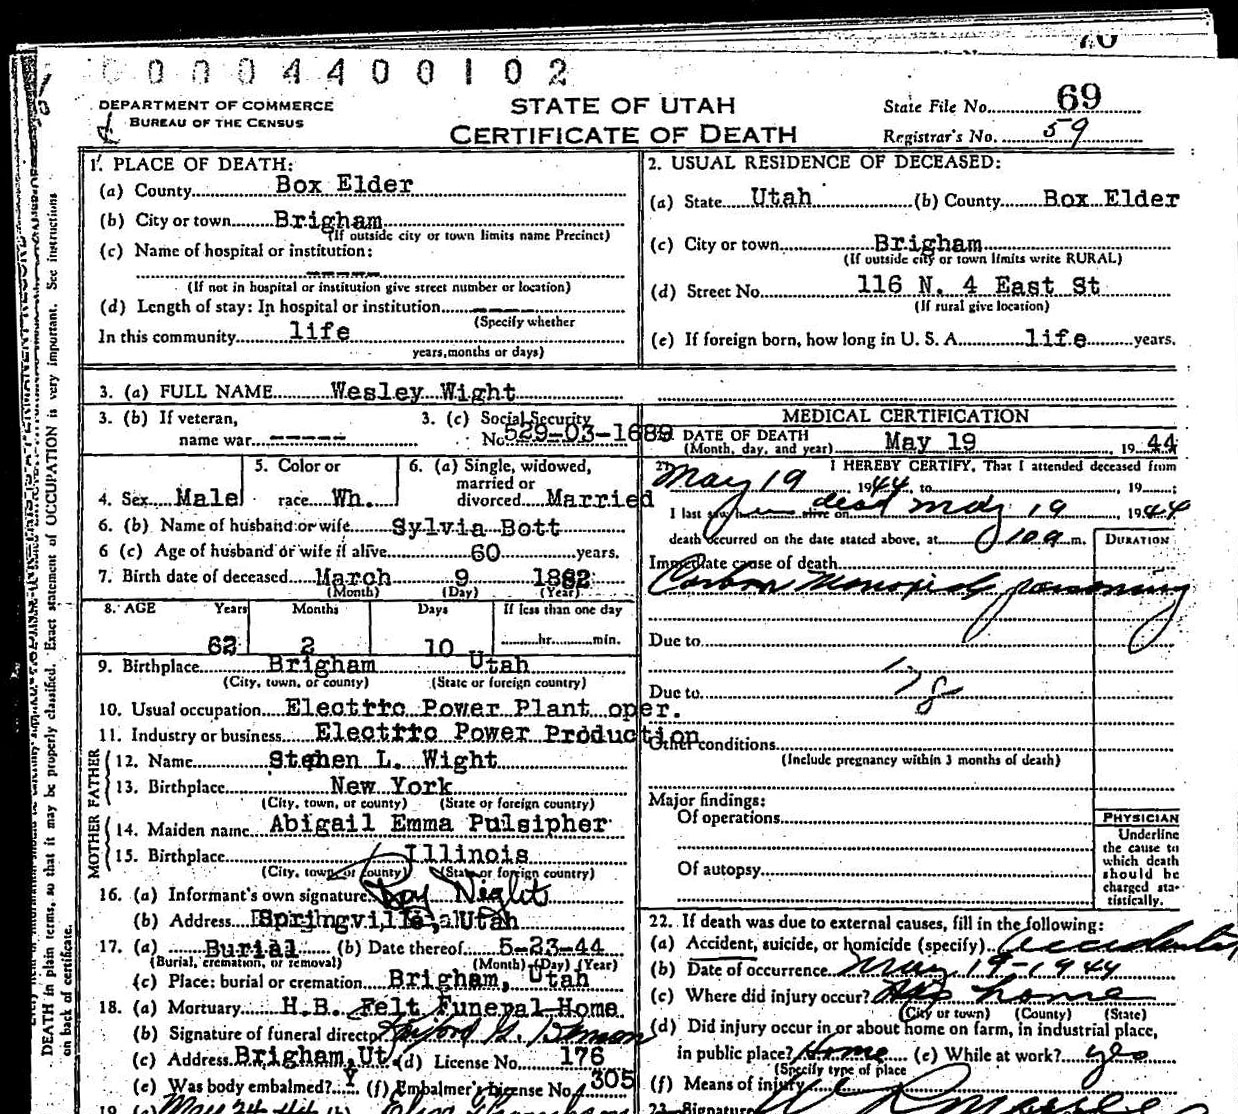 70
0 0 0 4 4 0 0 1 0 2
DEPARTMENT OF COMMERCE
BUREAU OF THE CENSUS
STATE OF UTAH
CERTIFICATE OF DEATH
State File No. 69
Registrar's No. 59
1. PLACE OF DEATH:
(a) County Box Elder
(b) City or town Brigham
(If outside city or town limits name Precinct)
(c) Name of hospital or institution:
-----
(If not in hospital or institution give street number or location)
(d) Length of stay: In hospital or institution ----
(Specify whether
In this community life
years, months or days)
2. USUAL RESIDENCE OF DECEASED:
(a) State Utah (b) County Box Elder
(c) City or town Brigham
(If outside city or town limits write RURAL)
(d) Street No. 116 N. 4 East St
(If rural give location)
(e) If foreign born, how long in U. S. A. life years.
3. (a) FULL NAME Wesley Wight
3. (b) If veteran,
name war -----
3. (c) Social Security
No. 529-03-1689
4. Sex Male
5. Color or
race Wh.
6. (a) Single, widowed,
married or
divorced Married
6. (b) Name of husband or wife Sylvia Bott
6 (c) Age of husband or wife if alive 60 years.
7. Birth date of deceased March 9 1882
(Month) (Day) (Year)
8. AGE Years Months Days If less than one day
62 2 10 hr. min.
9. Birthplace Brigham Utah
(City, town, or county) (State or foreign country)
10. Usual occupation Electric Power Plant oper.
11. Industry or business Electric Power Production
FATHER
12. Name Stephen L. Wight
13. Birthplace New York
(City, town, or county) (State or foreign country)
MOTHER
14. Maiden name Abigail Emma Pulsipher
15. Birthplace Illinois
(City, town or county) (State or foreign country)
16. (a) Informant's own signature Roy Wight
(b) Address Springville, Utah
17. (a) Burial (b) Date thereof 5-23-44
(Burial, cremation, or removal) (Month) (Day) (Year)
(c) Place: burial or cremation Brigham, Utah
18. (a) Mortuary H.B. Felt Funeral Home
(b) Signature of funeral director
(c) Address Brigham, Ut. (d) License No. 176
(e) Was body embalmed? Y (f) Embalmer's License No. 305
19. (a) May 24 (b)
MEDICAL CERTIFICATION
20. DATE OF DEATH
(Month, day, and year) May 19 1944
21. I HEREBY CERTIFY, That I attended deceased from
May 19 1944 to , 19 ;
I last saw him alive on dead May 19 1944
death occurred on the date stated above, at m.
DURATION
Immediate cause of death
Carbon Monoxide poisoning
Due to
178
Due to
Other conditions
(Include pregnancy within 3 months of death)
Major findings:
Of operations
Of autopsy
PHYSICIAN
Underline
the cause to
which death
should be
charged sta-
tistically.
22. If death was due to external causes, fill in the following:
(a) Accident, suicide, or homicide (specify) accidental
(b) Date of occurrence May 19-1944
(c) Where did injury occur? home
(City or town) (County) (State)
(d) Did injury occur in or about home on farm, in industrial place,
in public place? Home (e) While at work? yes
(Specify type of place
(f) Means of injury
23. Signature
DEATH in plain terms, so that it may be properly classified. Exact statement of OCCUPATION is very important. See instructions
on back of certificate.